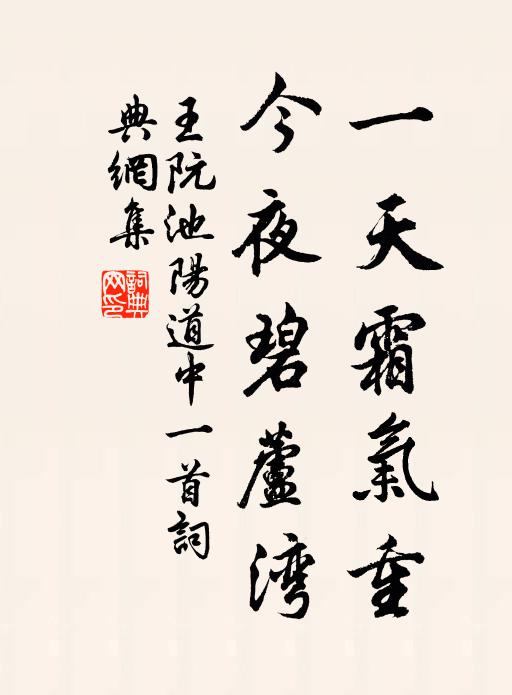 一天霜氣重
今夜碧蘆湾
王阮池陽道中一首詞
典網集
詞典
网印